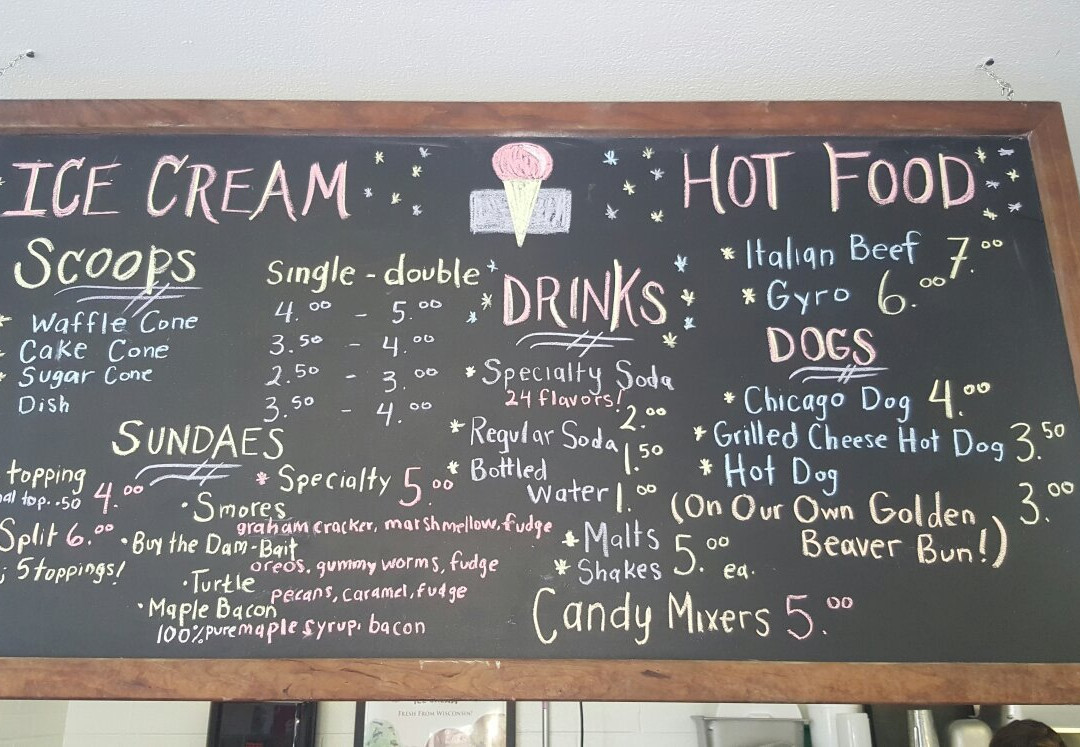 ICE CREAM
SCOOPS
Single - double
* Waffle Cone 4.00 - 5.00
* Cake Cone 3.50 - 4.00
* Sugar Cone 2.50 - 3.00
Dish 3.50 - 4.00
SUNDAES
topping
al top. .50 4.00
Split 6.00
5 toppings!
* Specialty 5.00
• Smores
graham cracker, marshmellow, fudge
• Buy the Dam-Bait
oreos, gummy worms, fudge
• Turtle
pecans, caramel, fudge
• Maple Bacon
100% pure maple syrup, bacon
DRINKS
* Specialty Soda
24 flavors! 2.00
* Regular Soda 1.50
* Bottled
Water 1.00
* Malts
* Shakes 5.00 ea.
Candy Mixers 5.00
HOT FOOD
* Italian Beef 7.00
* Gyro 6.00
DOGS
* Chicago Dog 4.00
* Grilled Cheese Hot Dog 3.50
* Hot Dog 3.00
(On Our Own Golden
Beaver Bun!)
FRESH FROM WISCONSIN!